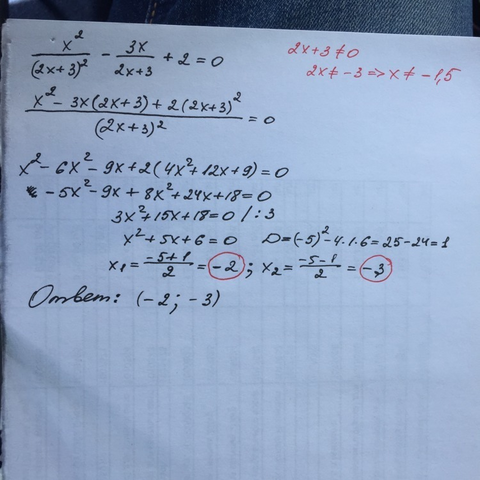 x²/(2x+3)² - 3x/(2x+3) + 2 = 0
2x+3 ≠ 0
2x ≠ -3 => x ≠ -1,5
(x² - 3x(2x+3) + 2(2x+3)²)/(2x+3)² = 0
x² - 6x² - 9x + 2(4x² + 12x + 9) = 0
-5x² - 9x + 8x² + 24x + 18 = 0
3x² + 15x + 18 = 0 /:3
x² + 5x + 6 = 0 D = (-5)² - 4·1·6 = 25 - 24 = 1
x₁ = (-5+1)/2 = -2; x₂ = (-5-1)/2 = -3
Ответ: (-2; -3)